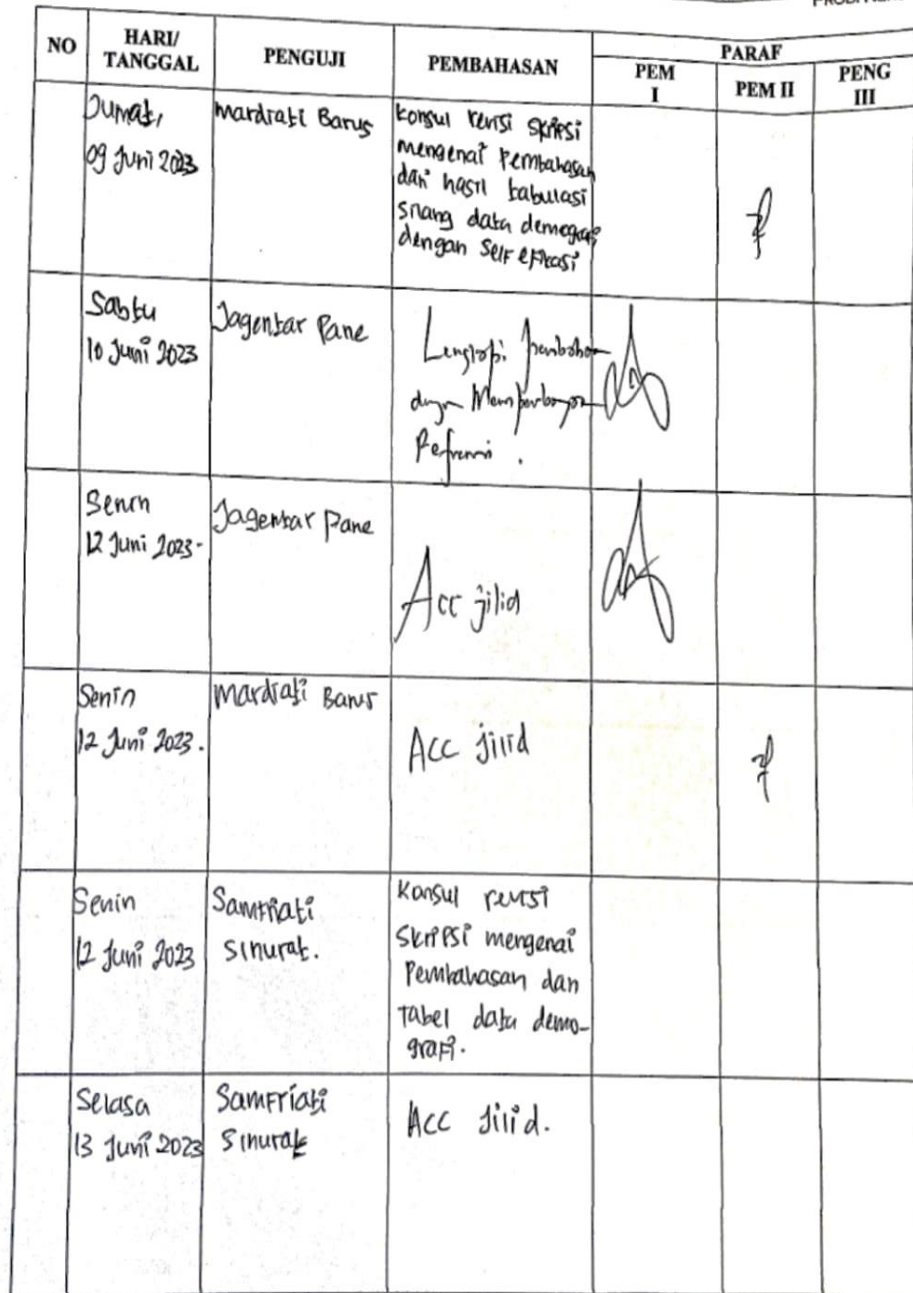 NO
HARI/
TANGGAL
PENGUJI
PEMBAHASAN
PARAF
PEM
I
PEM II
PENG
III
Jumat,
09 Juni 2023
Mardiati Barus
Konsul revisi skripsi
mengenai Pembahasan
dan hasil tabulasi
silang data demografi
dengan self efikasi
Sabtu
10 Juni 2023
Jagentar Pane
Lengkapi
Senin
12 Juni 2023.
Jagentar Pane
Acc jilid
Senin
12 Juni 2023.
Mardiati Barus
Acc jilid
Senin
12 Juni 2023
Samfriati
Sinurat.
Konsul revisi
Skripsi mengenai
Pembahasan dan
Tabel data demo-
grafi.
Selasa
13 Juni 2023
Samfriati
Sinurat
Acc Jilid.